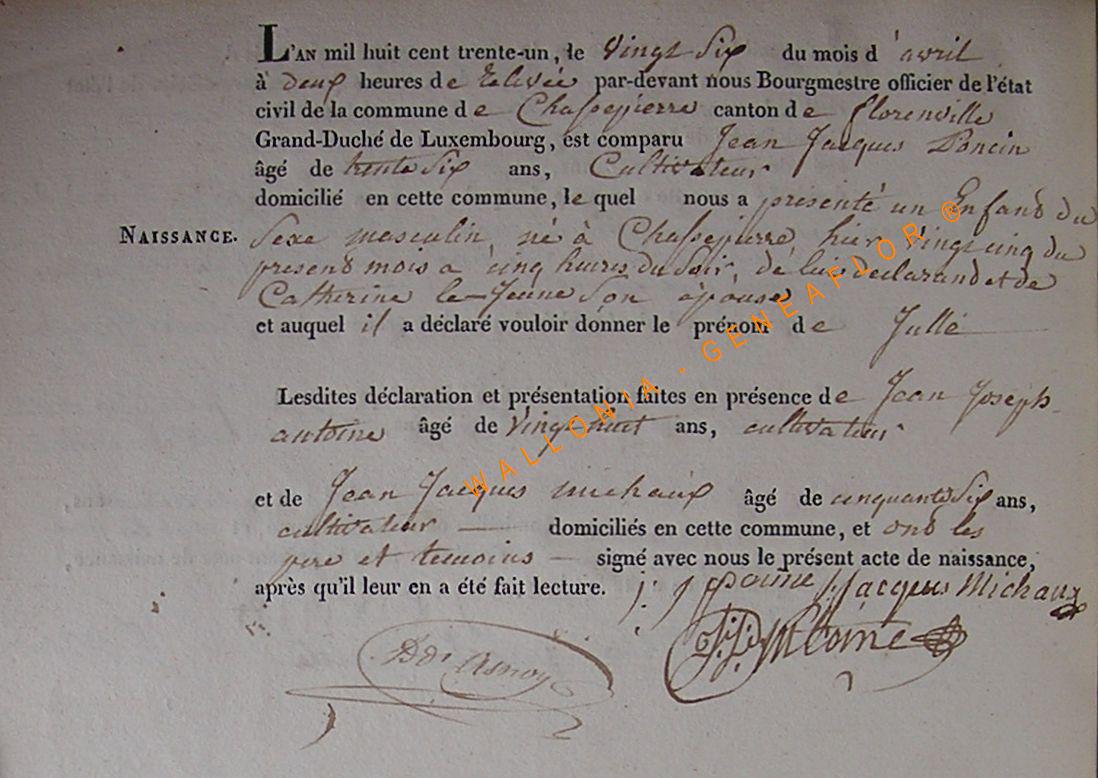 L'AN mil huit cent trente-un, le Vingt Six du mois d'avril
à deux heures de Relevée par-devant nous Bourgmestre officier de l'état
civil de la commune de Chassepierre canton de florenville
Grand-Duché de Luxembourg, est comparu Jean Jacques Poncin
âgé de trente Six ans, Cultivateur
domicilié en cette commune, le quel nous a présenté un Enfant du
NAISSANCE. Sexe masculin, né à Chassepierre, hier Vingt cinq du
present mois a cinq heures du Soir, de lui declarant et de
Catherine le Jeune Son épouse
et auquel il a déclaré vouloir donner le prénom de Julle
Lesdites déclaration et présentation faites en présence de Jean Joseph
antoine âgé de Vingt huit ans, cultivateur
et de Jean Jacques michaux âgé de cinquante Six ans,
cultivateur domiciliés en cette commune, et ont les
pere et temoins signé avec nous le présent acte de naissance,
après qu'il leur en a été fait lecture.
j: j J: Jacques Michaux
J. J.
WALLONIA - GENEAFLOR ®